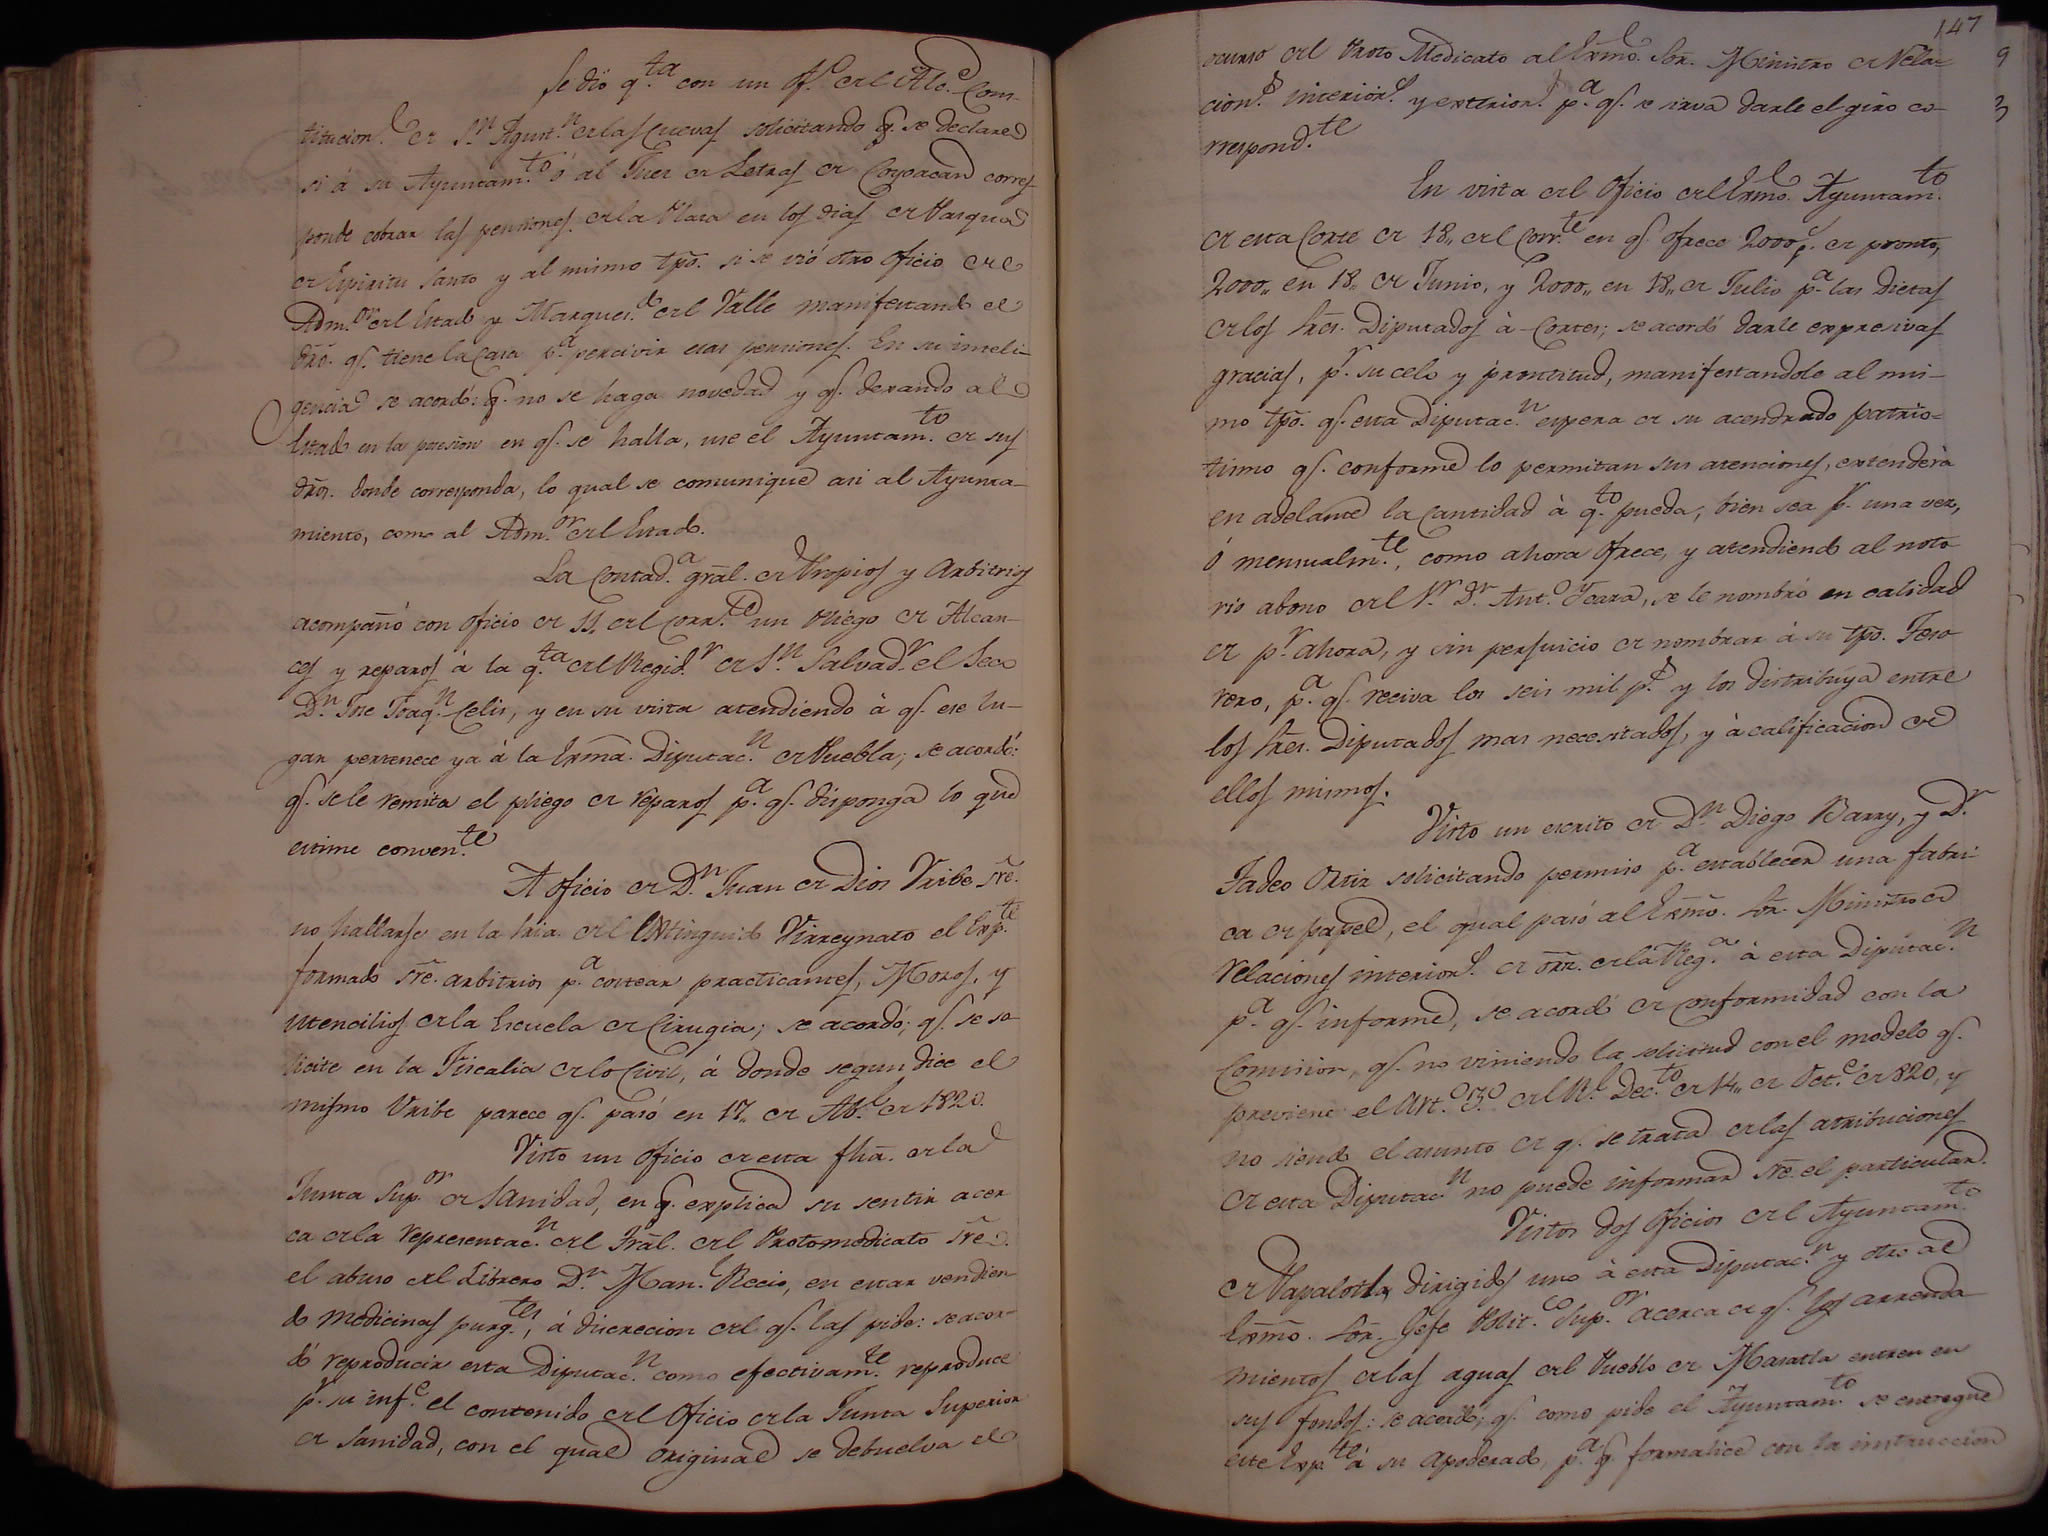 Se dió q.ta con un of.o del Alc.e Cons-
titucion.l de S.n Agust.n de las Cuevas solicitando q. se declare
si á su Ayuntam.to ó al Juez de Letras de Coyoacan corres-
ponde cobrar las pensiones de la Plaza en los dias de Pasqua
de Espiritu Santo y al mismo tpõ. si se vió otro oficio del
Adm.or del Estado y Marques.do del Valle manifestando el
dřo. q.e tiene la Casa p.a percivir esas pensiones. En su inteli-
gencia se acordó: q. no se haga novedad y q.e dexando al
Estado en la posesion en q.e se halla, use el Ayuntam.to de sus
dřos. donde corresponda, lo qual se comunique asi al Ayunta-
miento, como al Adm.or del Estado.
La Contad.a grãl. de Propios y Arbitrios
acompañó con oficio de 11,, del corr.te un Pliego de Alcan-
ces y reparos á la q.ta del Regid.r de S.n Salvad.r el Seco
D.n Jose Joaq.n Celis, y en su vista atendiendo à q.e ese lu-
gar pertenece ya á la Exmã. Diputac.n de Puebla; se acordó:
q.e se le remita el pliego de reparos p.a q.e disponga lo que
estime conven.te
A oficio de D.n Juan de Dios Uribe sře.
no hallarse en la Sría. del Extinguido Virreynato el Exp.te
formado sře. arbitrios p.a costear practicantes, Mozos, y
utencilios de la Escuela de Cirugia; se acordó; q.e se so-
licite en la Fiscalia de lo Civil, á donde segun dice el
mismo Uribe parece q.e pasó en 17,, de Ab.l de 1820.
Visto un oficio de esta fhã. de la
Junta Sup.or de Sanidad, en q. explica su sentir acer
ca de la representac.n del Trãl. del Protomedicato sře.
el abuso del Librero D.n Man.l Recio, en estar vendien
do Medicinas purg.tes, á discrecion del q.e las pide: se acor-
dó reproducir esta Diputac.n como efectivam.te reproduce
p.r su inf.e el contenido del Oficio de la Junta Superior
de Sanidad, con el qual original se debuelva el
147
ocurso del Proto Medicato al Exmõ. Sõr. Ministro de Rela-
cion.s interior.s y exterior.s p.a q.e se sirva darle el giro co-
rrespond.te
En vista del Oficio del Exmõ. Ayuntam.to
de esta Corte de 18,, del Corr.te en q.e ofrece 2000 p.s de pronto,
2000,, en 18,, de Junio, y 2000,, en 18,, de Julio p.a las Dietas
de los Sres. Diputados à Cortes; se acordó darle expresivas
gracias, p.r su celo y prontitud, manifestandole al mis-
mo tpõ. q.e esta Diputac.n espera de su acendrado patrio-
tismo q.e conforme lo permitan sus atenciones, extenderà
en adelante la cantidad à q.to pueda, bien sea p.r una vez,
ó mensualm.te, como ahora ofrece, y atendiendo al noto
rio abono del S.r D.r Ant.o Ycaza, se le nombró en calidad
de p.r ahora, y sin perjuicio de nombrar á su tpõ. Teso
rero, p.a q.e reciva los seis mil p.s y los distribúya entre
los Sres. Diputados mas necesitados, y à calificacion de
ellos mismos.
Visto un escrito de D.n Diego Barry, y D.n
Tadeo Ortiz solicitando permiso p.a establecer una fabri-
ca de papel, el qual pasó al Exmõ. Sõr. Ministro de
relaciones interior.s de orñ. de la Reg.a à esta Diputac.n
p.a q.e informe, se acordó de conformidad con la
Comision, q.e no viniendo la solicitud con el modelo q.e
previene el Art.o 3.o del R.l Dec.to de 14,, de Oct.e de 820, y
no siendo el asunto de q.e se trata de las atribuciones
de esta Diputac.n no puede informar sře. el particular.
Vistos dos oficios del Ayuntam.to
de Papalotla dirigidos uno à esta Diputac.n y otro al
Exmõ. Sõr. Gefe Polit.co Sup.or acerca de q.e los arrenda
mientos de las aguas del Pueblo de Mazatla entren en
sus fondos: se acordó; q.e como pide el Ayuntam.to se entregue
este Exp.te á su Apoderado, p.a q. formalice con la instruccion